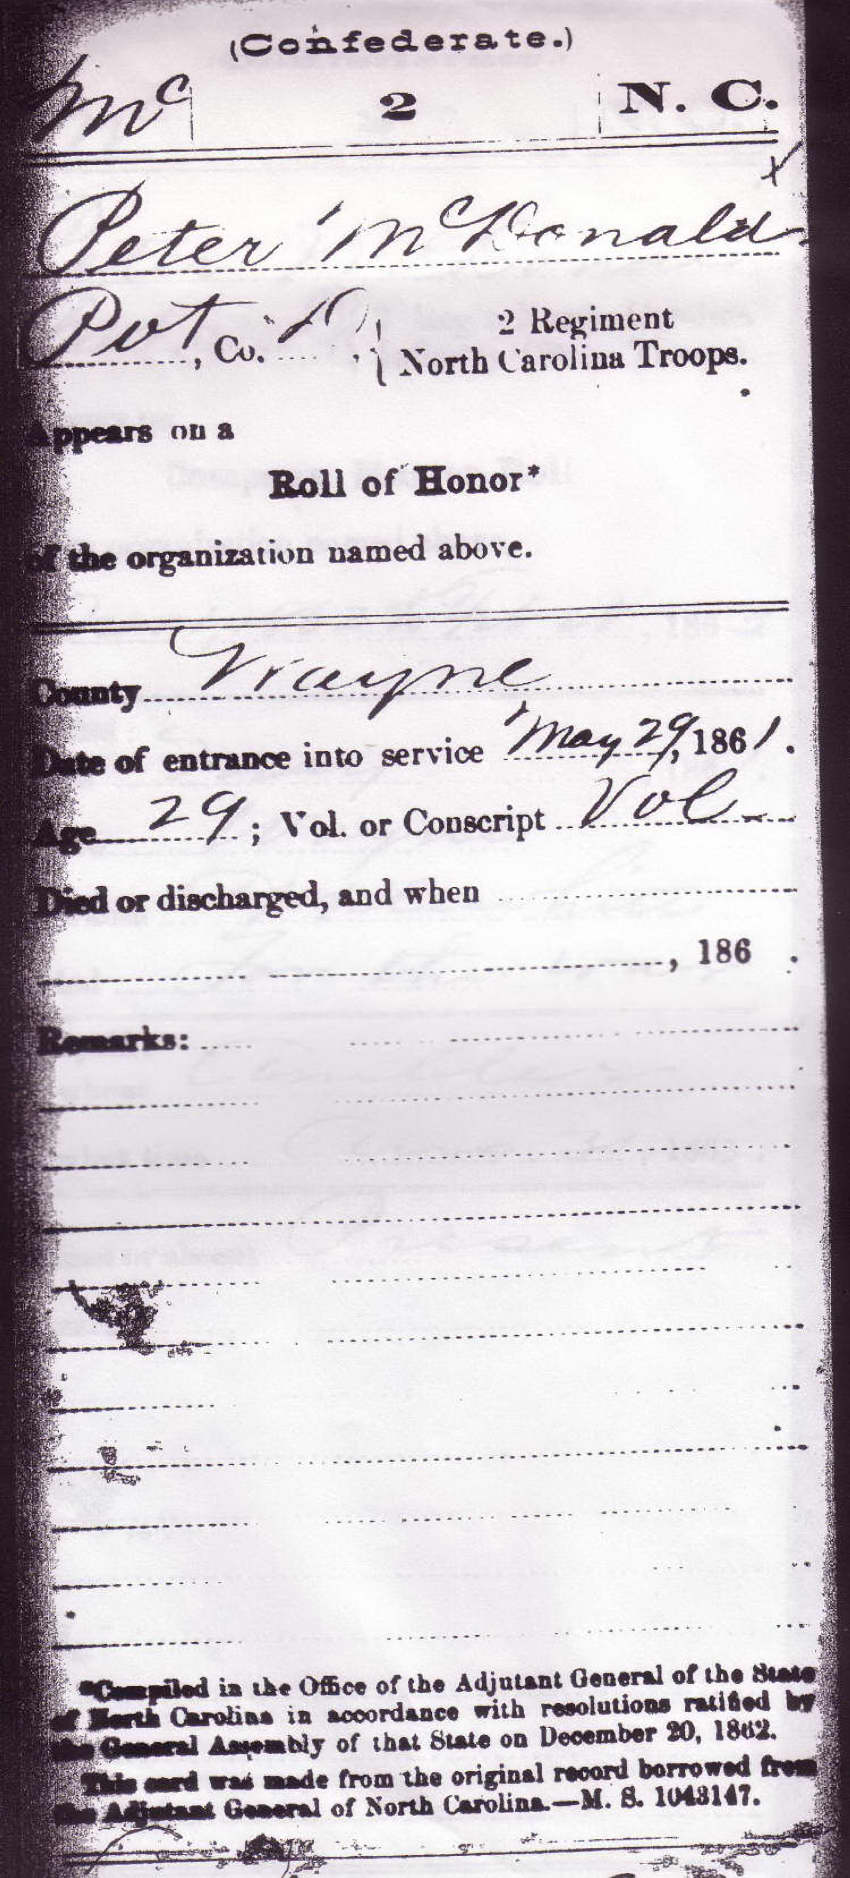 (Confederate.)
Mc 2 N. C.
x
Peter McDonald
Pvt, Co. D, 2 Regiment
North Carolina Troops.
Appears on a
Roll of Honor*
of the organization named above.
County Wayne
Date of entrance into service May 29, 1861.
Age 29; Vol. or Conscript Vol
Died or discharged, and when
, 186 .
Remarks:
*Compiled in the Office of the Adjutant General of the State
of North Carolina in accordance with resolutions ratified by
the General Assembly of that State on December 20, 1862.
This card was made from the original record borrowed from
the Adjutant General of North Carolina.—M. S. 1043147.